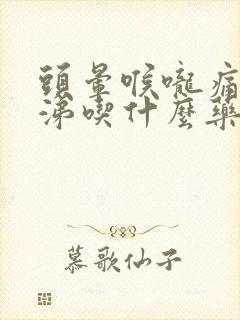 頭暈喉嚨痛
涕喫什麼藥
慕歌仙子